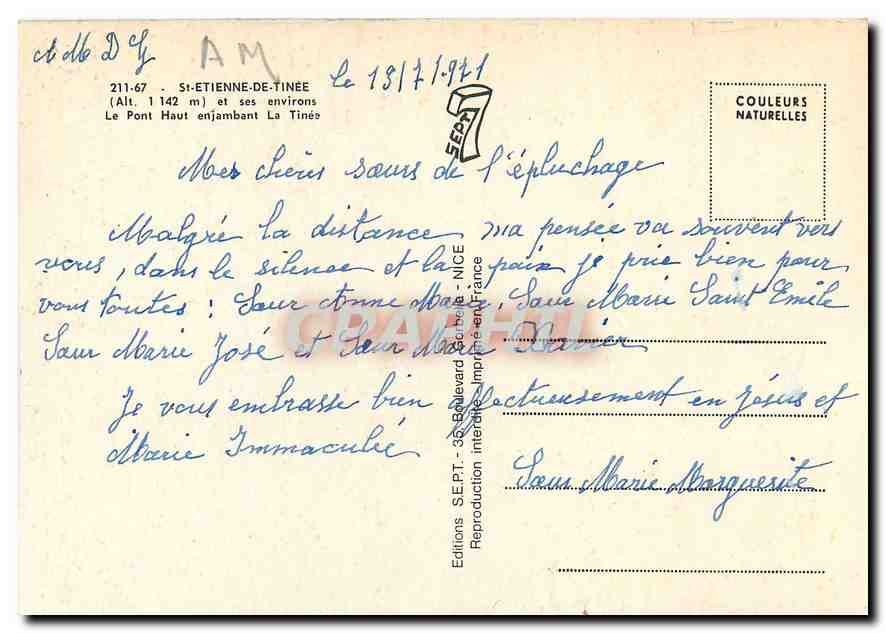 A M D G
AM
le 13/7/1971
211-67 - St-ETIENNE-DE-TINÉE
(Alt. 1 142 m) et ses environs
Le Pont Haut enjambant La Tinée
SEPT
COULEURS
NATURELLES
Mes chères sœurs de l'épluchage
Malgré la distance ma pensée va souvent vers
vous, dans le silence et la paix je prie bien pour
vous toutes : Sœur Anne Marie, Sœur Marie Saint Emile
Sœur Marie José et Sœur Marie Xavier
Je vous embrasse bien affectueusement en Jésus et
Marie Immaculée
Sœur Marie Marguerite
Editions S.E.P.T. - 35, Boulevard Gorbella - NICE
Reproduction interdite Imprimé en France
CPAPHIL